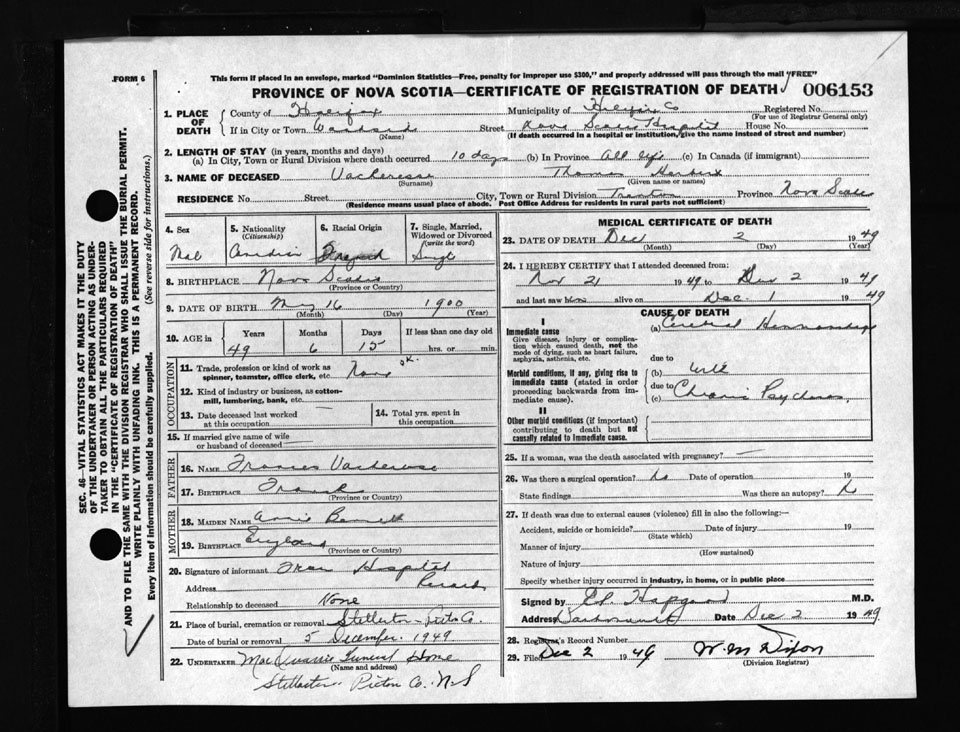 FORM 6
This form if placed in an envelope, marked "Dominion Statistics—Free, penalty for improper use $300," and properly addressed will pass through the mail "FREE"
PROVINCE OF NOVA SCOTIA—CERTIFICATE OF REGISTRATION OF DEATH 006153
1. PLACE OF DEATH
County of Halifax Municipality of Halifax Co Registered No.
(For use of Registrar General only)
If in City or Town Street Nova Scotia Hospital House No.
(Name) (If death occurred in a hospital or institution, give the name instead of street and number)
2. LENGTH OF STAY (in years, months and days)
(a) In City, Town or Rural Division where death occurred 10 days (b) In Province All life (c) In Canada (if immigrant)
3. NAME OF DECEASED Vacheresse Thomas Herbert
(Surname) (Given name or names)
RESIDENCE No. Street City, Town or Rural Division Trenton Province Nova Scotia
(Residence means usual place of abode. Post Office Address for residents in rural parts not sufficient)
4. Sex
Male
5. Nationality
(Citizenship)
Canadian
6. Racial Origin
7. Single, Married, Widowed or Divorced
(write the word)
Single
8. BIRTHPLACE Nova Scotia
(Province or Country)
9. DATE OF BIRTH May 16 1900
(Month) (Day) (Year)
10. AGE in
Years Months Days If less than one day old
49 6 15 hrs. or min.
OCCUPATION
11. Trade, profession or kind of work as spinner, teamster, office clerk, etc. None
12. Kind of industry or business, as cotton-mill, lumbering, bank, etc.
13. Date deceased last worked at this occupation
14. Total yrs. spent in this occupation
15. If married give name of wife or husband of deceased
FATHER
16. NAME Francis Vacheresse
17. BIRTHPLACE France
(Province or Country)
MOTHER
18. MAIDEN NAME Annie Bennett
19. BIRTHPLACE England
(Province or Country)
20. Signature of informant From Hospital
Address Records
Relationship to deceased None
21. Place of burial, cremation or removal Stellarton - Pictou Co.
Date of burial or removal 5 December. 1949
22. UNDERTAKER MacQuarrie Funeral Home
(Name and address)
Stellarton Pictou Co. N.S
MEDICAL CERTIFICATE OF DEATH
23. DATE OF DEATH Dec 2 1949
(Month) (Day) (Year)
24. I HEREBY CERTIFY that I attended deceased from:
Nov 21 1949 to Dec 2 1949
and last saw him alive on Dec. 1 1949
CAUSE OF DEATH
I
Immediate cause
Give disease, injury or complication which caused death, not the mode of dying, such as heart failure, asphyxia, asthenia, etc.
(a) Cerebral Hemorrhage
due to
Morbid conditions, if any, giving rise to immediate cause (stated in order proceeding backwards from immediate cause).
(b) with
due to
(c) Chronic Psychosis.
II
Other morbid conditions (if important) contributing to death but not causally related to immediate cause.
25. If a woman, was the death associated with pregnancy?
26. Was there a surgical operation? No Date of operation 19
State findings Was there an autopsy? No
27. If death was due to external causes (violence) fill in also the following:—
Accident, suicide or homicide? Date of injury 19
(State which)
Manner of injury
(How sustained)
Nature of injury
Specify whether injury occurred in industry, in home, or in public place
Signed by Hapgood M.D.
Address Dartmouth Date Dec 2 1949
28. Registrar's Record Number
29. Filed Dec 2 1949 W. M Dixon
(Division Registrar)
SEC. 46—VITAL STATISTICS ACT MAKES IT THE DUTY
OF THE UNDERTAKER OR PERSON ACTING AS UNDER-
TAKER TO OBTAIN ALL THE PARTICULARS REQUIRED
IN THE "CERTIFICATE OF REGISTRATION OF DEATH"
AND TO FILE THE SAME WITH THE DIVISION REGISTRAR WHO SHALL ISSUE THE BURIAL PERMIT.
WRITE PLAINLY WITH UNFADING INK. THIS IS A PERMANENT RECORD.
Every item of information should be carefully supplied. (See reverse side for instructions.)